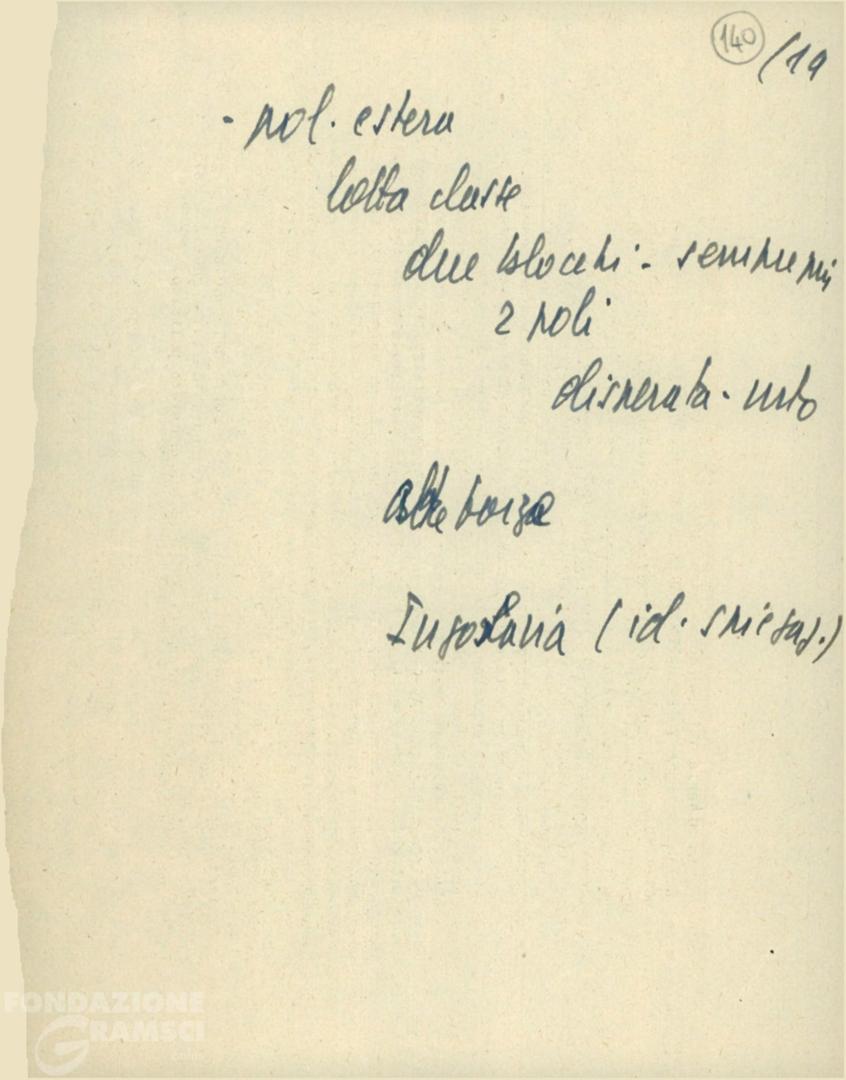 140
/19
- pol. estera
lotta classe
due blocchi - sempre più
2 poli
disperata - urto
altre forze
Jugoslavia (id. spiegaz.)
FONDAZIONE
GRAMSCI